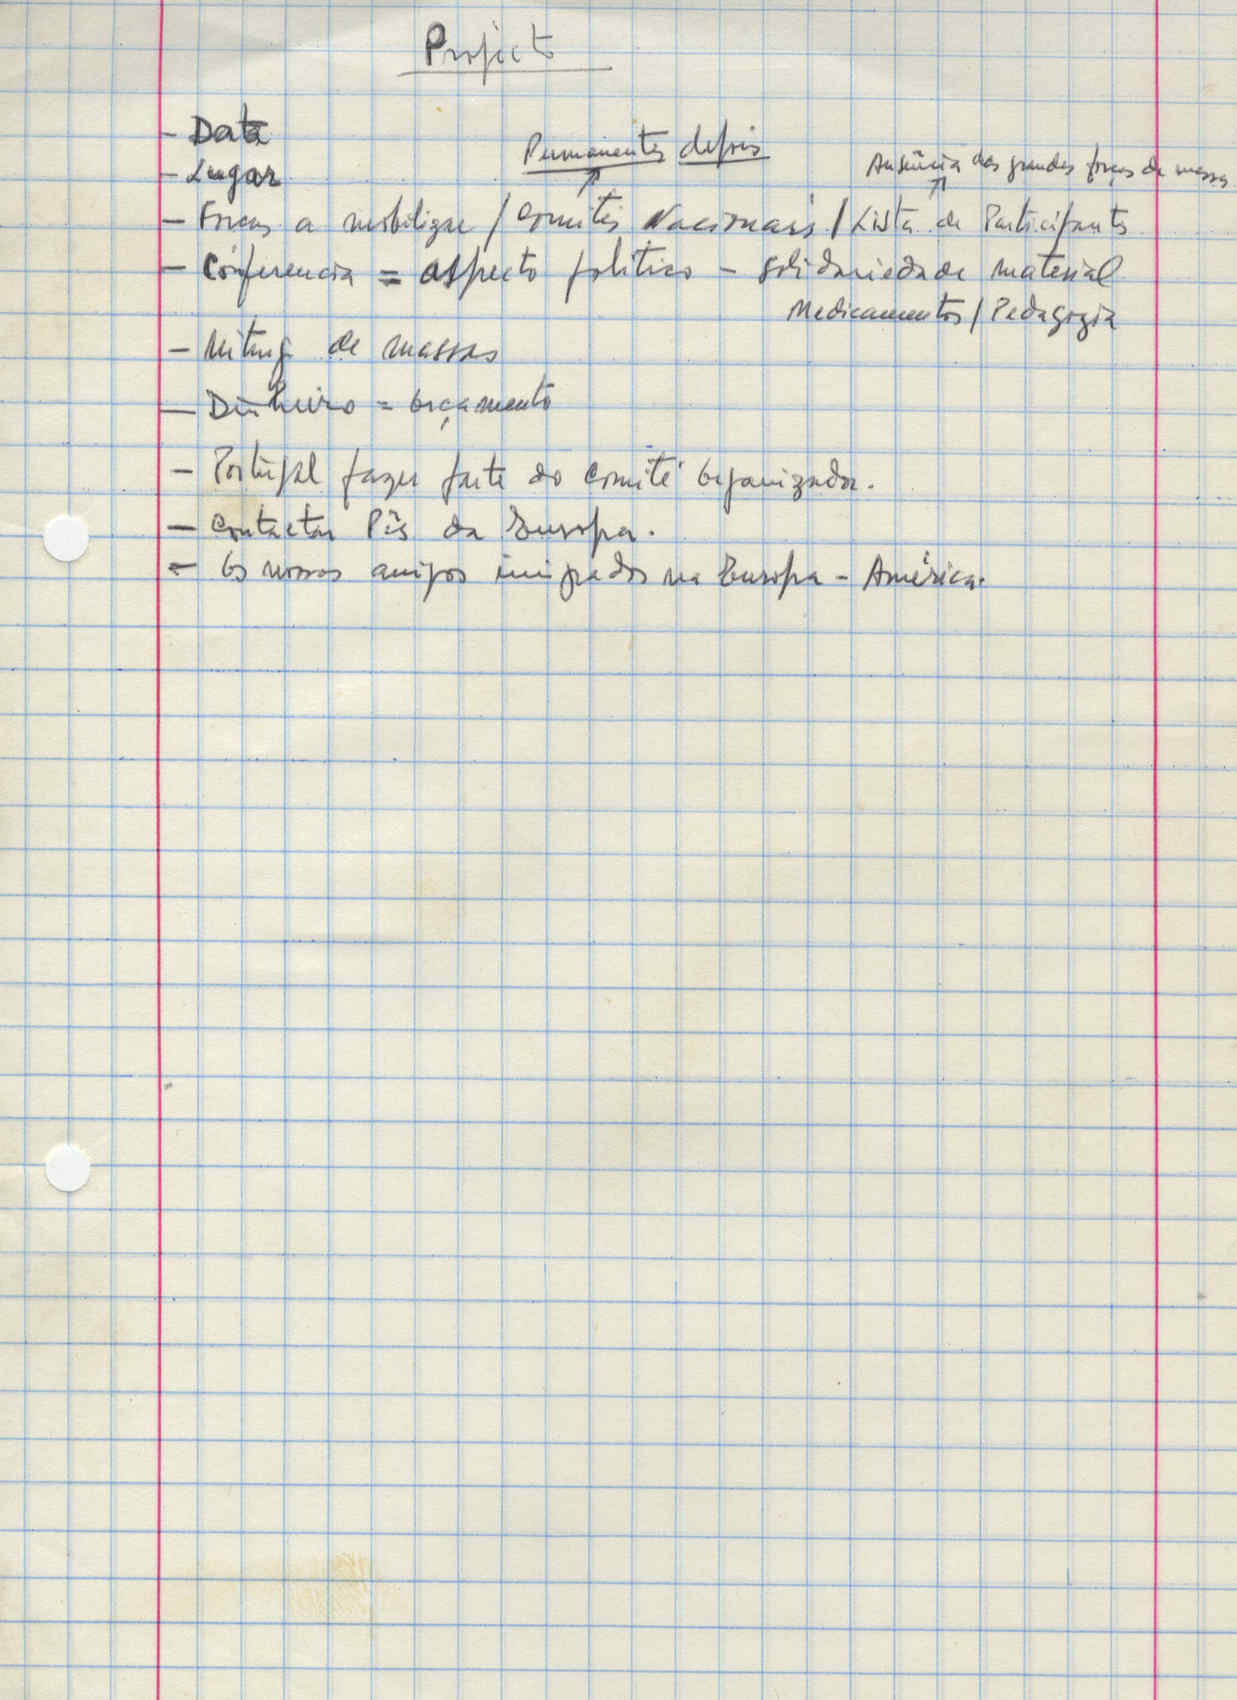 Projecto
- Data
Permanentes depois
Ausência das grandes forças de massas
- Lugar
- Forças a mobilizar / Comités Nacionais / Lista de Participantes
- Conferencia = aspecto politico - solidariedade material
Medicamentos / Pedagogia
- Miting de massas
- Dinheiro = orçamento
- Portugal fazer parte do comité organizador.
- Contactar PCs da Europa.
- Os nossos amigos imigrados na Europa - América.